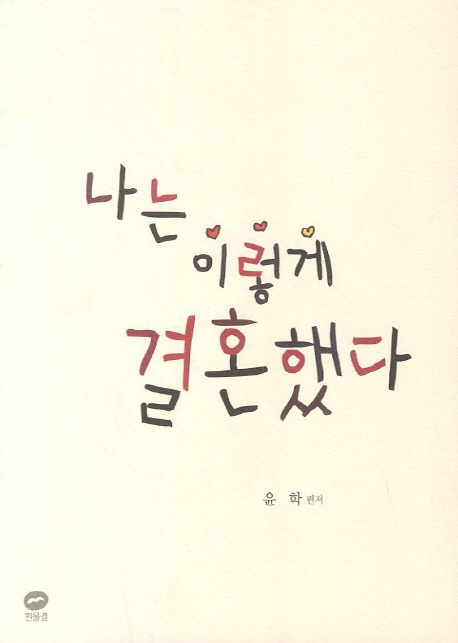 나는
이렇게
결혼했다
윤 학 편저
흰물결